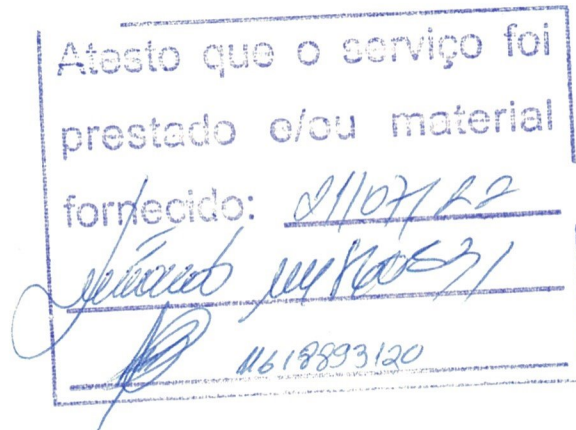 Atesto que o serviço foi
prestado e/ou material
fornecido: 21/07/22
11618893120